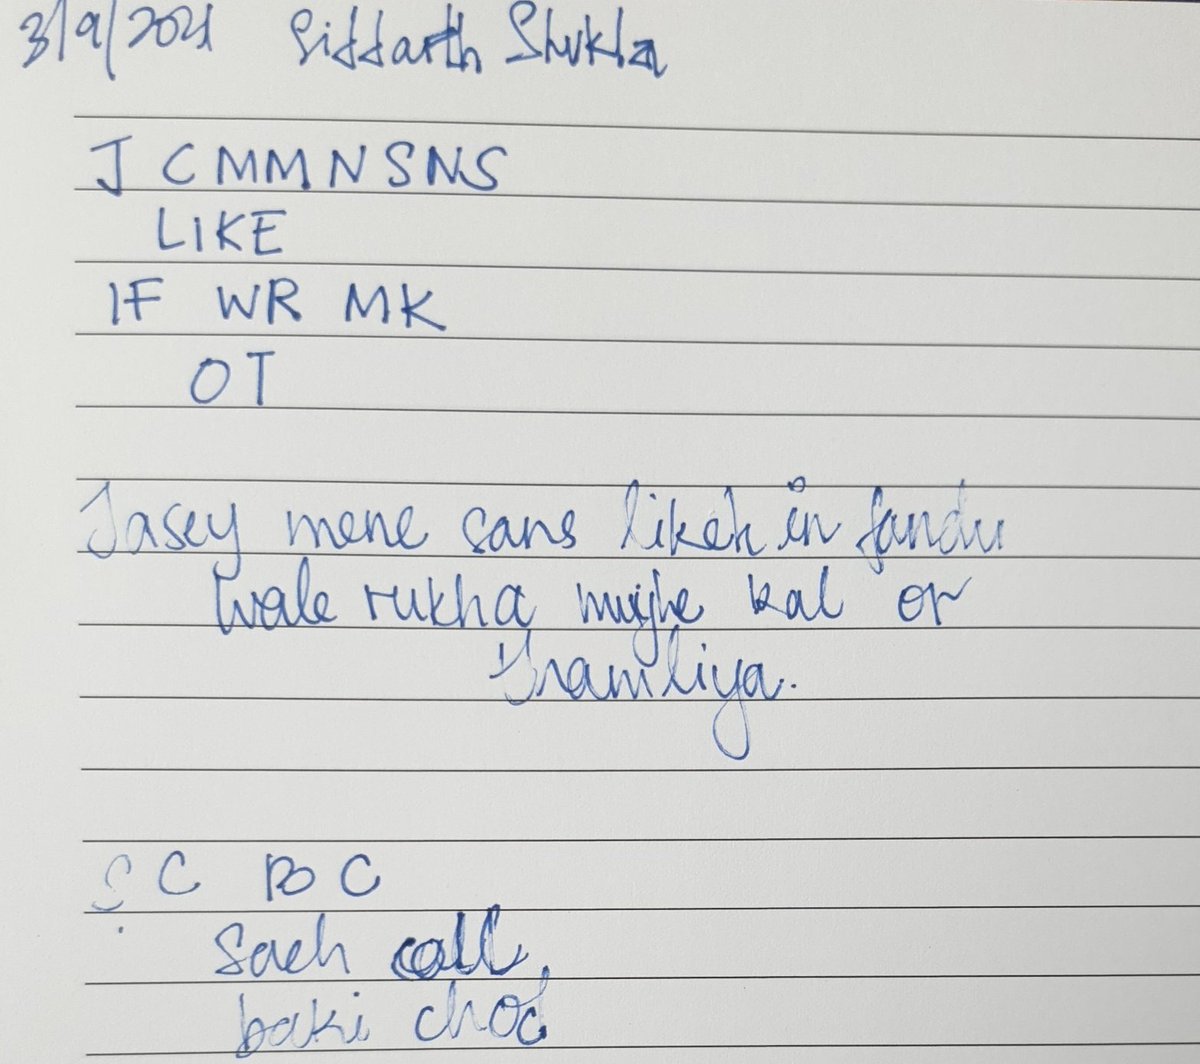 3/9/2021 Siddarth Shukla
J C M M N S N S
LIKE
IF WR MK
OT
Jasey mene sans likeh in fandu
wale rukha mujhe kal or
thamliya.
S C B C
Sach call,
baki chod